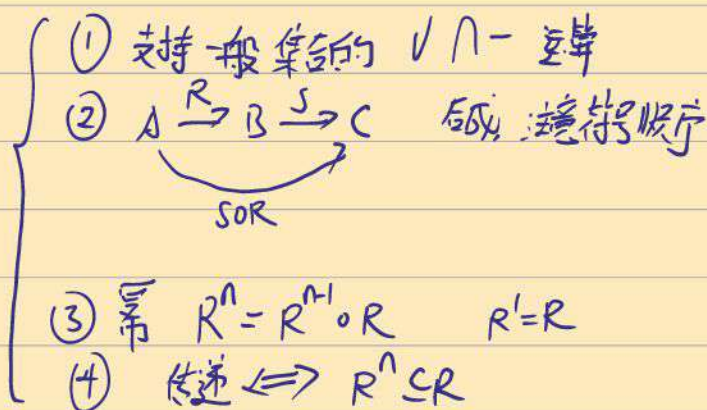 ① 支持一般集合的 ∪ ∩ − 运算
② A →R B →S C 合成，注意符号顺序
S∘R
③ 幂 Rⁿ = Rⁿ⁻¹ ∘ R R¹ = R
④ 传递 <=> Rⁿ ⊆ R